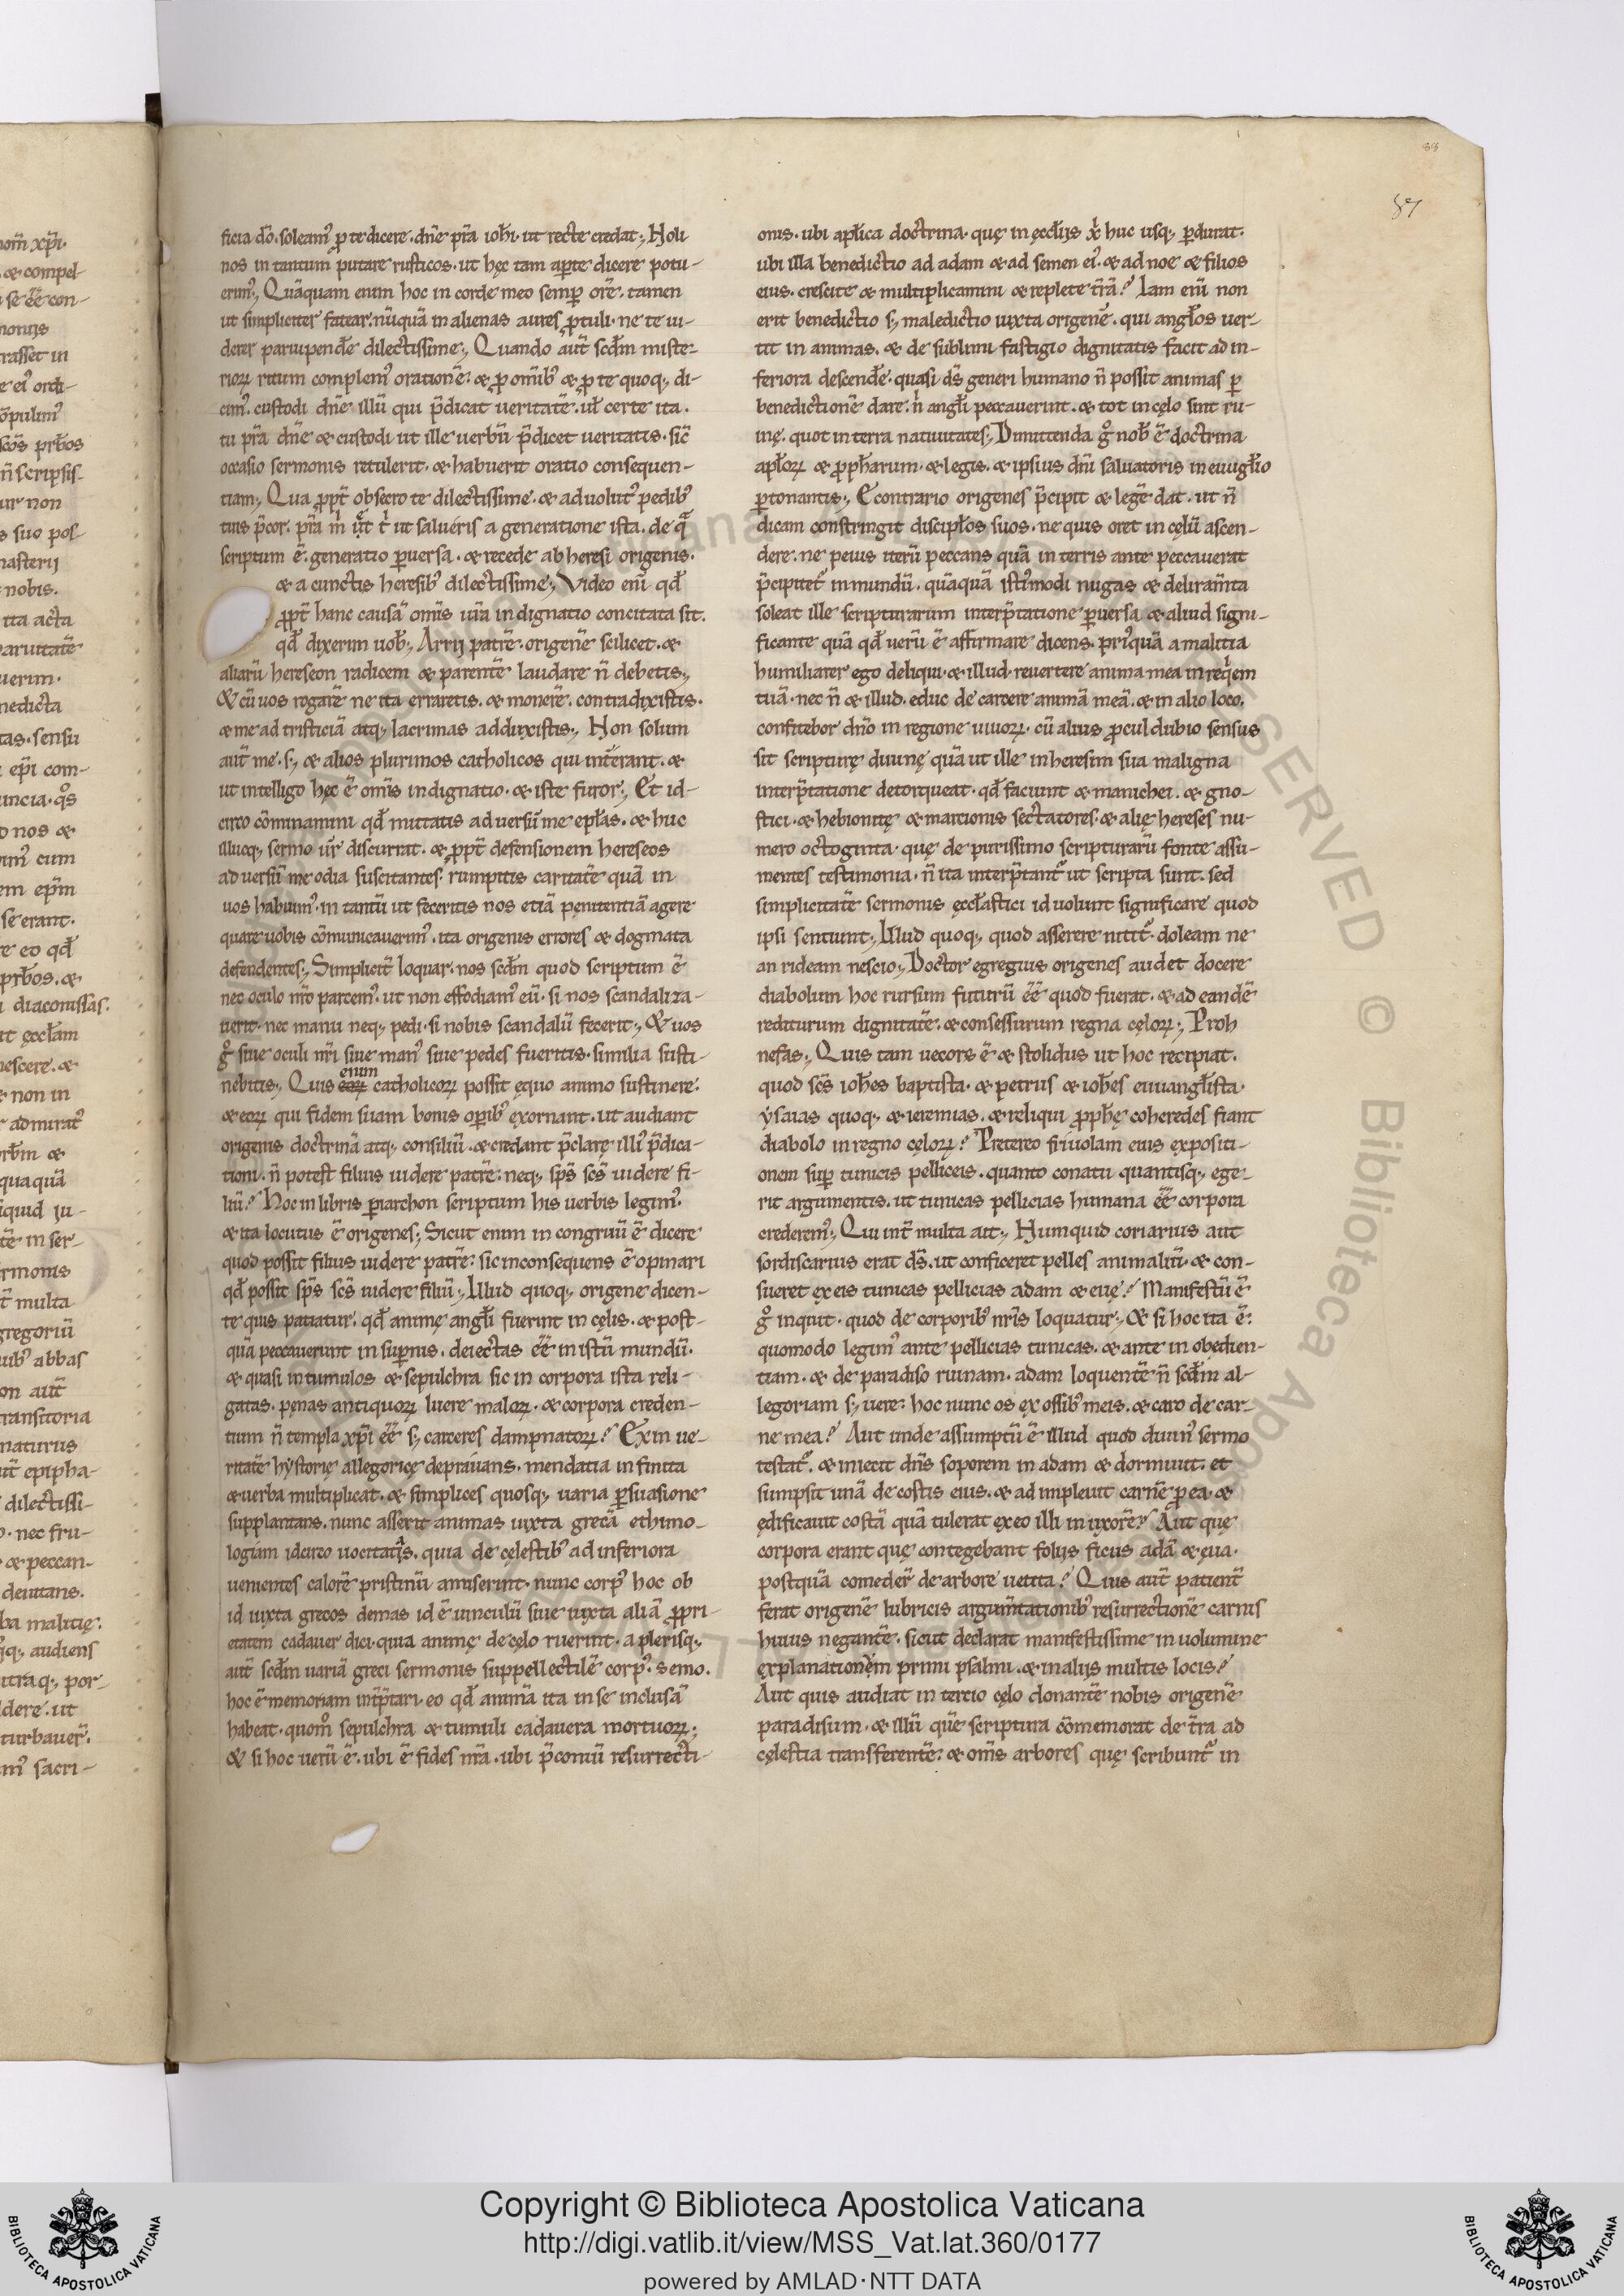 88
87
ficia dõ. soleam᾿ ꝓ te dicere. dñe pr̃a ioħi. ut recte credat; Noli
nos in tantum putare rusticos. ut hęc tam aꝑte dicere potu-
erim᾿; Quãquam enim hoc in corde meo semꝑ orẽ. tamen
ut simpliciter fatear. nũquã in alienas aures ꝓtuli. ne te ui-
derer paruipendẽ dilectissime; Quando aut̃ scđm miste-
rioꝝ ritum complem᾿ orationẽ. & ꝓ omĩb᾿ & ꝓ te quoq; di-
cim᾿. custodi dñe illũ qui p̃dicat ueritatẽ. uł certe ita.
tu pr̃a dñe & custodi ut ille uerbũ p̃dicet ueritatis. sic̃
occasio sermonis retulerit. & habuerit oratio consequen-
tiam; Qua ꝓpt̃ obsecro te dilectissime. & aduolut᾿ pedib᾿
tuis p̃cor. pr̃a m̃ ⁊ t̃ ut salueris a generatione ista. de q̃
scriptum ẽ. generatio ꝑuersa. & recede ab heresi origenis.
& a cunctis heresib᾿ dilectissime; Video enĩ qđ
ꝓpt̃ hanc causã omĩs ur̃a indignatio concitata sit.
qđ dixerim uoƀ; Arrij patrẽ. origenẽ scilicet. &
aliarũ hereseon radicem & parentẽ laudare ñ debetis;
& cũ uos rogarẽ ne ita erraretis. & monerẽ. contradixistis.
& me ad tristiciã atq; lacrimas adduxistis; Non solum
aut̃ me. s; & alios plurimos catholicos qui interant. &
ut intelligo hęc ẽ omĩs indignatio. & iste furor; Et id-
circo cõminamini qđ mittatis aduersũ me epłas. & huc
illucq; sermo ur̃ discurrat. & ꝓpt̃ defensionem hereseos
aduersũ me odia suscitantes. rumpitis caritatẽ quã in
uos habuim᾿. in tantũ ut feceritis nos etiã penitentiã agere
quare uobis cõmunicauerim᾿. ita origenis errores & dogmata
defendentes; Simplicit̃ loquar. nos scđm quod scriptum ẽ
nec oculo nr̃o parcem᾿. ut non effodiam᾿ eũ. si nos scandaliza-
uerit. nec manu neq; pedi. si nobis scandalũ fecerit; & uos
g° siue oculi nr̃i siue man᾿ siue pedes fueritis. similia susti-
enim
nebitis; Quis eoꝝ catholicoꝝ possit ęquo animo sustinere.
& eoꝝ qui fidem suam bonis oꝑib᾿ exornant. ut audiant
origenis doctrinã atq; consiliũ. & credant p̃clarę illi᾿ p̃dica-
tioni. ñ potest filius uidere patrẽ. neq; sp̃s sc̃s uidere fi-
liũ? Hoc in libris ꝑiarchon scriptum his uerbis legim᾿.
& ita locutus ẽ origenes; Sicut enim incongruũ ẽ dicere
quod possit filius uidere patrẽ: sic inconsequens ẽ opinari
qđ possit sp̃s sc̃s uidere filiũ; Illud quoq; origene dicen-
te quis patiatur. qđ animę angłi fuerint in cęlis. & post-
quã peccauerunt in suꝑnis. deiectas eẽ in istũ mundũ.
& quasi in tumulos & sepulchra sic in corpora ista reli-
gatas. pęnas antiquoꝝ luere maloꝝ. & corpora creden-
tium ñ templa xp̃i eẽ s; carceres dampnatoꝝ? Exin ue-
ritatẽ hystorię allegoricę deprauans. mendatia infinita
& uerba multiplicat. & simplices quosq; uaria ꝑsuasione
supplantans. nunc asserit animas iuxta grecã ethimo-
logiam idcirco uocitatãs. quia de cęlestib᾿ ad inferiora
uenientes calorẽ pristinũ amiserint. nunc corp᾿ hoc ob
id iuxta grecos demas id ẽ uinculũ siue iuxta aliã ꝓpri-
etatem cadauer dici. quia animę de cęlo ruerint. a plerisq;
aut̃ scđm uariã greci sermonis suppellectilẽ corp᾿. semo.
hoc ẽ memoriam int̃p̃tari. eo qđ animã ita in se inclusã
habeat. quom° sepulchra & tumuli cadauera mortuoꝝ;
& si hoc uerũ ẽ. ubi ẽ fides nr̃a. ubi p̃coniũ resurrecti-
onis. ubi apłica doctrina. quę in ęccłijs x̃ huc usq; ꝑdurat.
ubi illa benedictio ad adam & ad semen ei᾿. & ad noe & filios
eius. crescite & multiplicamini & replete t̃rã? Iam enĩ non
erit benedictio s; maledictio iuxta origenẽ. qui angłos uer-
tit in animas. & de sublimi fastigio dignitatis facit ad in-
feriora descendẽ. quasi dñs generi humano ñ possit animas ꝑ
benedictionẽ dare. ñ angłi peccauerint. & tot in cęlo sint ru-
inę. quot in terra natiuitates; Dimittenda g° noƀ ẽ doctrina
apłoꝝ & ꝓphetarum. & legis. & ipsius dñi saluatoris in euugłio
ꝑtonantis; Econtrario origenes p̃cipit & legẽ dat. ut ñ
dicam constringit discipłos suos. ne quis oret in cęlũ ascen-
dere. ne peius iterũ peccans quã in terris ante peccauerat
p̃cipitet᾿ in mundũ. quãquã isti᾿modi nugas & deliram̃ta
soleat ille scripturarum interp̃tatione ꝑuersa & aliud signi-
ficante quã qđ uerũ ẽ affirmare dicens. pri᾿quã a malitia
humiliarer ego deliqui. & illud. reuertere anima mea in requiem
tuã. nec ñ & illud. educ de carcere animã meã. & in alio loco.
confitebor dño in regione uiuoꝝ. cũ alius ꝓcul dubio sensus
sit scripturę diuinę quã ut ille in heresim sua maligna
interp̃tatione detorqueat. qđ faciunt & manichei. & gno-
stici. & hebionitę & marcionis sectatores. & alię hereses nu-
mero octoginta. quę de purissimo scripturarũ fonte assu-
mentes testimonia. ñ ita interp̃tant᾿ ut scripta sunt. sed
simplicitatẽ sermonis ęccłastici id uolunt significare quod
ipsi sentiunt; Illud quoq; quod asserere nitit᾿. doleam ne
an rideam nescio; Doctor egregius origenes audet docere
diabolum hoc rursum futurũ eẽ quod fuerat. & ad eandẽ
rediturum dignitatẽ. & consessurum regna cęloꝝ; Proh
nefas; Quis tam uecors ẽ & stolidus ut hoc recipiat.
quod sc̃s ioħes baptista. & petrus & ioħes euuangłista.
ysaias quoq; & ieremias. & reliqui ꝓphę coheredes fiant
diabolo in regno cęloꝝ? Pretereo friuolam eius expositi-
onem suꝑ tunicis pelliceis. quanto conatu quantisq; ege-
rit argumentis. ut tunicas pellicias humana eẽ corpora
crederem᾿; Qui int̃ multa ait; Numquid coriarius aut
sordiscarius erat dñs. ut conficeret pelles animaliũ. & con-
sueret ex eis tunicas pellicias adam & euę? Manifestũ ẽ
g° inquit. quod de corporib᾿ nr̃is loquatur; & si hoc ita ẽ:
quomodo legim᾿ ante pellicias tunicas. & ante inobedien-
tiam. & de paradiso ruinam. adam loquentẽ ñ scđm al-
legoriam s; uere: hoc nunc os ex ossib᾿ meis. & caro de car-
ne mea? Aut unde assumptũ ẽ illud quod diuin᾿ sermo
testat᾿. & iniecit dñs soporem in adam & dormiuit. et
sumpsit unã de costis eius. & adimpleuit carnẽ ꝓ ea. &
ędificauit costã quã tulerat ex eo illi in uxorẽ? Aut quę
corpora erant quę contegebant folijs ficus adã & ęua.
postquã comeder̃ de arbore uetita? Quis aut̃ patient̃
ferat origenẽ lubricis argum̃tationib᾿ resurrectionẽ carnis
huius negantẽ. sicut declarat manifestissime in uolumine
explanationẽm primi psalmi. & in alijs multis locis?
Aut quis audiat in tercio cęlo donantẽ nobis origenẽ
paradisum. & illũ quẽ scriptura cõmemorat de t̃ra ad
cęlestia transferentẽ: & om̃s arbores quę scribunt᾿ in
Copyright © Biblioteca Apostolica Vaticana
http://digi.vatlib.it/view/MSS_Vat.lat.360/0177
powered by AMLAD·NTT DATA
BIBLIOTECA APOSTOLICA VATICANA
BIBLIOTECA APOSTOLICA VATICANA